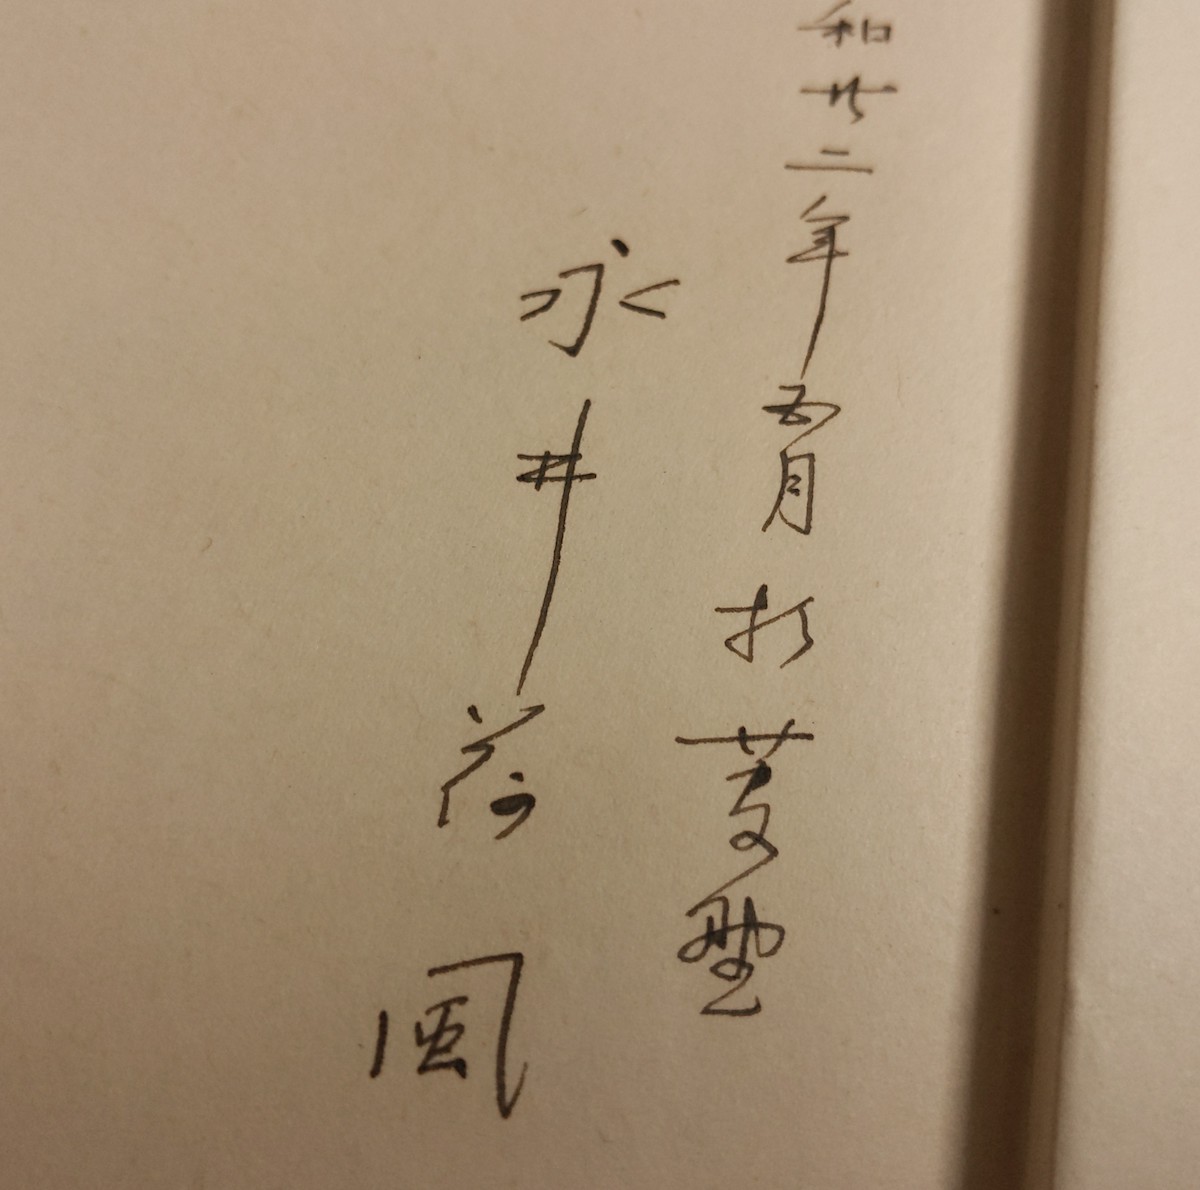 和廿二年五月於
永井荷風